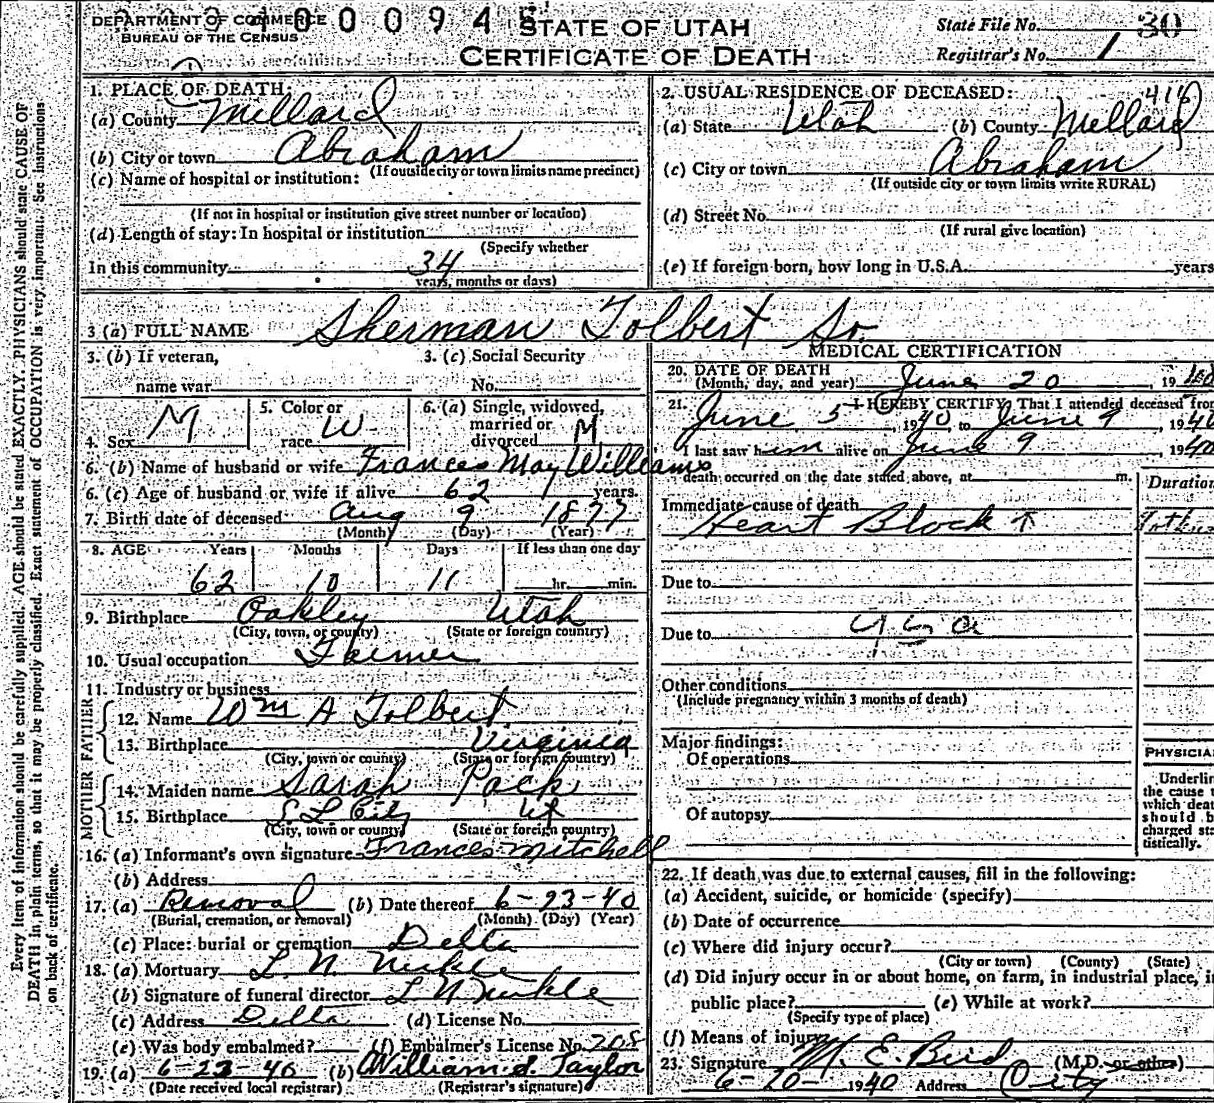 DEPARTMENT OF COMMERCE
BUREAU OF THE CENSUS
0 0 9 4
STATE OF UTAH
CERTIFICATE OF DEATH
State File No. 30
Registrar's No. 1
Every item of information should be carefully supplied. AGE should be stated EXACTLY. PHYSICIANS should state CAUSE OF
DEATH in plain terms, so that it may be properly classified. Exact statement of OCCUPATION is very important. See instructions
on back of certificate.
1. PLACE OF DEATH:
(a) County Millard
(b) City or town Abraham
(If outside city or town limits name precinct)
(c) Name of hospital or institution:
(If not in hospital or institution give street number or location)
(d) Length of stay: In hospital or institution
(Specify whether
In this community 34
years, months or days)
2. USUAL RESIDENCE OF DECEASED:
(a) State Utah (b) County Millard
(c) City or town Abraham
(If outside city or town limits write RURAL)
(d) Street No.
(If rural give location)
(e) If foreign born, how long in U.S.A. years
3 (a) FULL NAME Sherman Tolbert Sr.
3. (b) If veteran,
name war
3. (c) Social Security
No.
4. Sex M
5. Color or
race W
6. (a) Single, widowed,
married or
divorced M
6. (b) Name of husband or wife Frances May Williams
6. (c) Age of husband or wife if alive 62 years.
7. Birth date of deceased Aug 9 1877
(Month) (Day) (Year)
8. AGE Years Months Days If less than one day
62 10 11 hr. min.
9. Birthplace Oakley Utah
(City, town, or county) (State or foreign country)
10. Usual occupation Farmer
11. Industry or business
FATHER
12. Name Wm A Tolbert
13. Birthplace Virginia
(City, town or county) (State or foreign country)
MOTHER
14. Maiden name Sarah Pack
15. Birthplace S L City Ut
(City, town or county) (State or foreign country)
16. (a) Informant's own signature Frances Mitchell
(b) Address
17. (a) Removal (b) Date thereof 6-23-40
(Burial, cremation, or removal) (Month) (Day) (Year)
(c) Place: burial or cremation Delta
18. (a) Mortuary L. N.
(b) Signature of funeral director L N
(c) Address Delta (d) License No.
(e) Was body embalmed? (f) Embalmer's License No. 208
19. (a) 6-23-40 (b) William S. Taylor
(Date received local registrar) (Registrar's signature)
MEDICAL CERTIFICATION
20. DATE OF DEATH
(Month, day, and year) June 20, 1940
21. I HEREBY CERTIFY, That I attended deceased from
June 5, 1940, to June 9, 1940
I last saw him alive on June 9, 1940
death occurred on the date stated above, at m.
Duration
Immediate cause of death
Heart Block
Due to
Due to
Other conditions
(Include pregnancy within 3 months of death)
Major findings:
Of operations
Of autopsy
PHYSICIA
Underlin
the cause t
which deat
should b
charged sta
tistically.
22. If death was due to external causes, fill in the following:
(a) Accident, suicide, or homicide (specify)
(b) Date of occurrence
(c) Where did injury occur?
(City or town) (County) (State)
(d) Did injury occur in or about home, on farm, in industrial place, in
public place? (e) While at work?
(Specify type of place)
(f) Means of injury
23. Signature M. E. Bird (M.D. or other)
6-20-1940 Address City